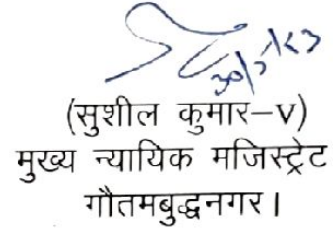 30/5/23
(सुशील कुमार–V)
मुख्य न्यायिक मजिस्ट्रेट
गौतमबुद्धनगर।